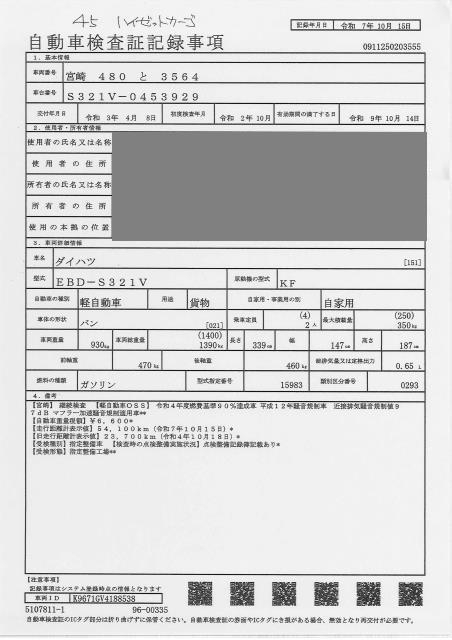 45 ハイゼットカーゴ
記録年月日 令和 7年10月 15日
自動車検査証記録事項
0911250203555
1．基本情報
車両番号 宮崎 480 と 3564
車台番号 S321V-0453929
交付年月日 令和 3年 4月 8日 初度検査年月 令和 2年 10月 有効期間の満了する日 令和 9年 10月 14日
2．使用者・所有者情報
使用者の氏名又は名称
使用者の住所
所有者の氏名又は名称
所有者の住所
使用の本拠の位置
3．車両詳細情報
車名 ダイハツ [151]
型式 EBD-S321V 原動機の型式 KF
自動車の種別 軽自動車 用途 貨物 自家用・事業用の別 自家用
車体の形状 バン [021] 乗車定員 (4) 2人 最大積載量 (250) 350kg
車両重量 930kg 車両総重量 (1400) 1390kg 長さ 339cm 幅 147cm 高さ 187cm
前軸重 470kg 後軸重 460kg 総排気量又は定格出力 0.65 L
燃料の種類 ガソリン 型式指定番号 15983 類別区分番号 0293
4．備考
【宮崎】 継続検査 【軽自動車OSS】 令和4年度燃費基準90%達成車 平成12年騒音規制車 近接排気騒音規制値9
7dB マフラー加速騒音規制適用車**
【自動車重量税額】￥6,600*
【走行距離計表示値】54,100km（令和7年10月15日）*
【旧走行距離計表示値】23,700km（令和4年10月18日）*
【受検種別】指定整備車 【検査時の点検整備実施状況】点検整備記録簿記載あり*
【受検形態】指定整備工場**
【注意事項】
記録事項はシステム登録時点の情報となります
車両ID K9671GV4188538
5107811-1 96-00335
自動車検査証のICタグ部分は折り曲げずに保管ください。自動車検査証の券面やICタグにき損がある場合、無効となり再交付が必要です。